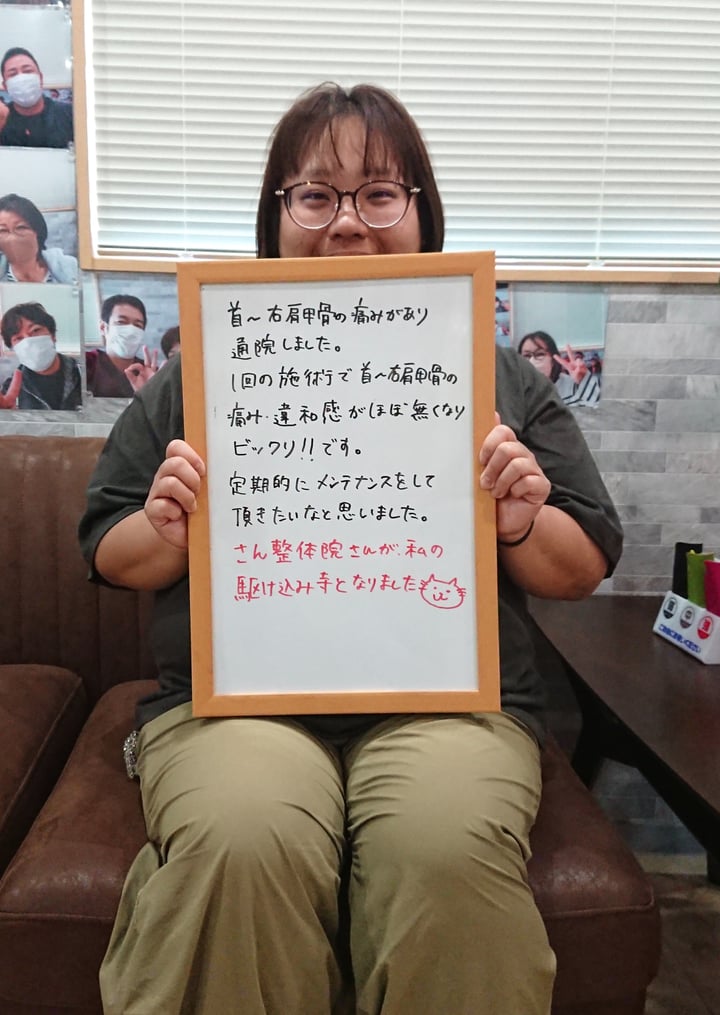 首〜右肩甲骨の痛みがあり
通院しました。
1回の施術で首〜右肩甲骨の
痛み・違和感がほぼ無くなり
ビックリ!!です。
定期的にメンテナンスをして
頂きたいなと思いました。
さん整体院さんが、私の
駆け込み寺となりました